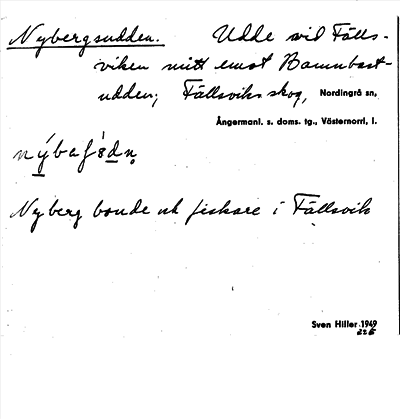 Nybergsudden. Udde vid Fälls-
viken mitt emot Bannbast-
udden; Fällsviks skog, Nordingrå sn,
Ångermanl. s. doms. tg., Västernorrl, l.
Nyberg bonde och fiskare i Fällsvik
Sven Hiller 1949